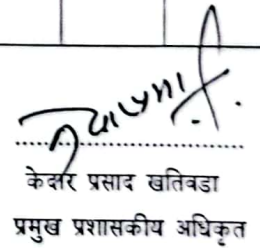 केदार प्रसाद खतिवडा
प्रमुख प्रशासकीय अधिकृत